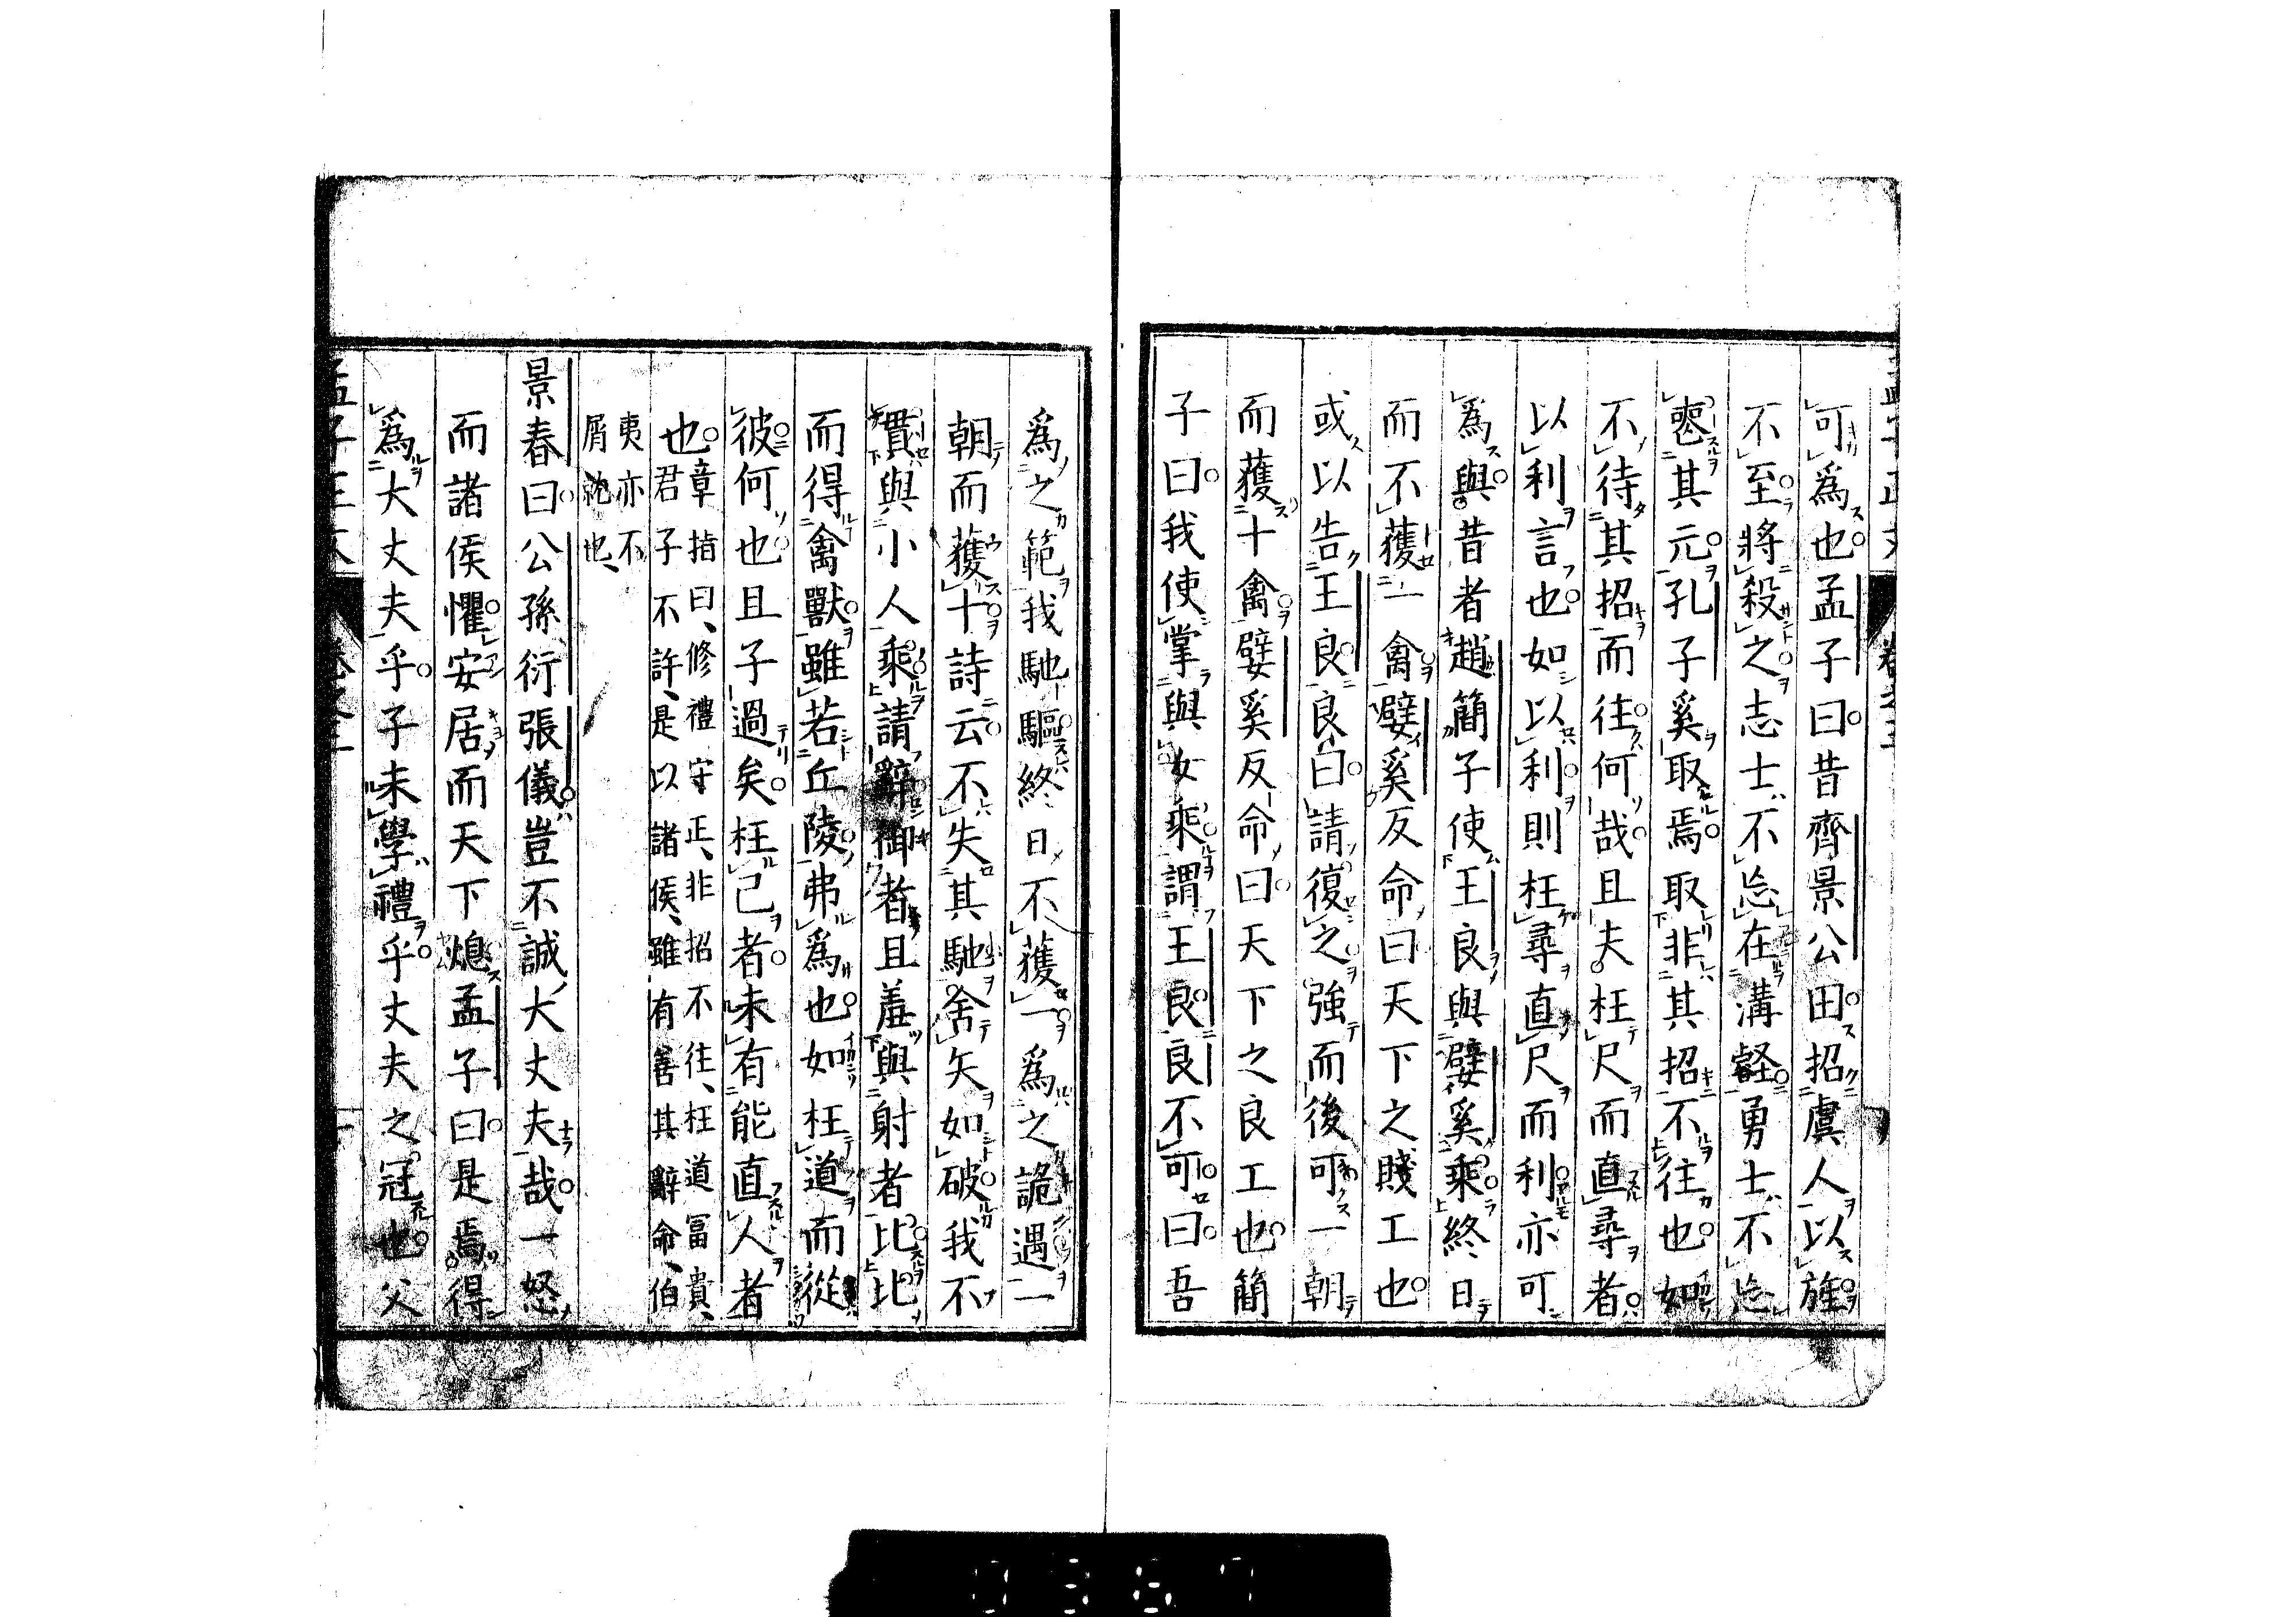 可爲也孟子曰昔齊景公田招虞人以旌
不至將殺之志士不忘在溝壑勇士不忘
喪其元孔子奚取焉取非其招不往也如
不待其招而往何哉且夫枉尺而直尋者
以利言也如以利則枉尋直尺而利亦可
爲與昔者趙簡子使王良與嬖奚乘終日
而不獲一禽嬖奚反命曰天下之賤工也
或以告王良良曰請復之強而後可一朝
而獲十禽嬖奚反命曰天下之良工也簡
子曰我使掌與女乘謂王良良不可曰吾
爲之範我馳驅終日不獲一爲之詭遇一
朝而獲十詩云不失其馳舍矢如破我不
貫與小人乘請辭御者且羞與射者比比
而得禽獸雖若丘陵弗爲也如枉道而從
彼何也且子過矣枉己者未有能直人者
也章指曰、修禮守正、非招不往、枉道富貴、
君子不許、是以諸侯、雖有善其辭命、伯
夷亦不
屑就也、
景春曰公孫衍張儀豈不誠大丈夫哉一怒
而諸侯懼安居而天下熄孟子曰是焉得
爲大丈夫乎子未學禮乎丈夫之冠也父